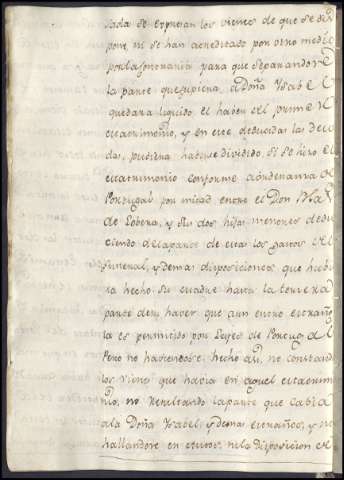 nada se expresan los vienes de que se dis
pone, ni se han acreditado por otro medio
por la sonorania para que separandose
la parte que supiera, a Doña Ysabel
quedara liquido el haber del primer
matrimonio, y en este deducidas las deu
das, pudiera haberse dividido, si se hizo el
matrimonio conforme a ordenanza de
Portugal por mitad entre el Don Blas
de Lobera, y sus dos hijas menores dedu
ciendo de la parte de esta los gastos del
funeral, y demas disposiciones que hubie
ra hecho su madre hasta la tercera
parte de su haver que aun entre estraños
la es permitido por Leyes de Portugal
Pero no haviendose hecho asi, no constando
los vienes que havia en aquel matrimo
nio, no resultando la parte que cabia
a la Doña Ysabel, y demas estraños, y no
hallandose en autos, ni la disposicion de